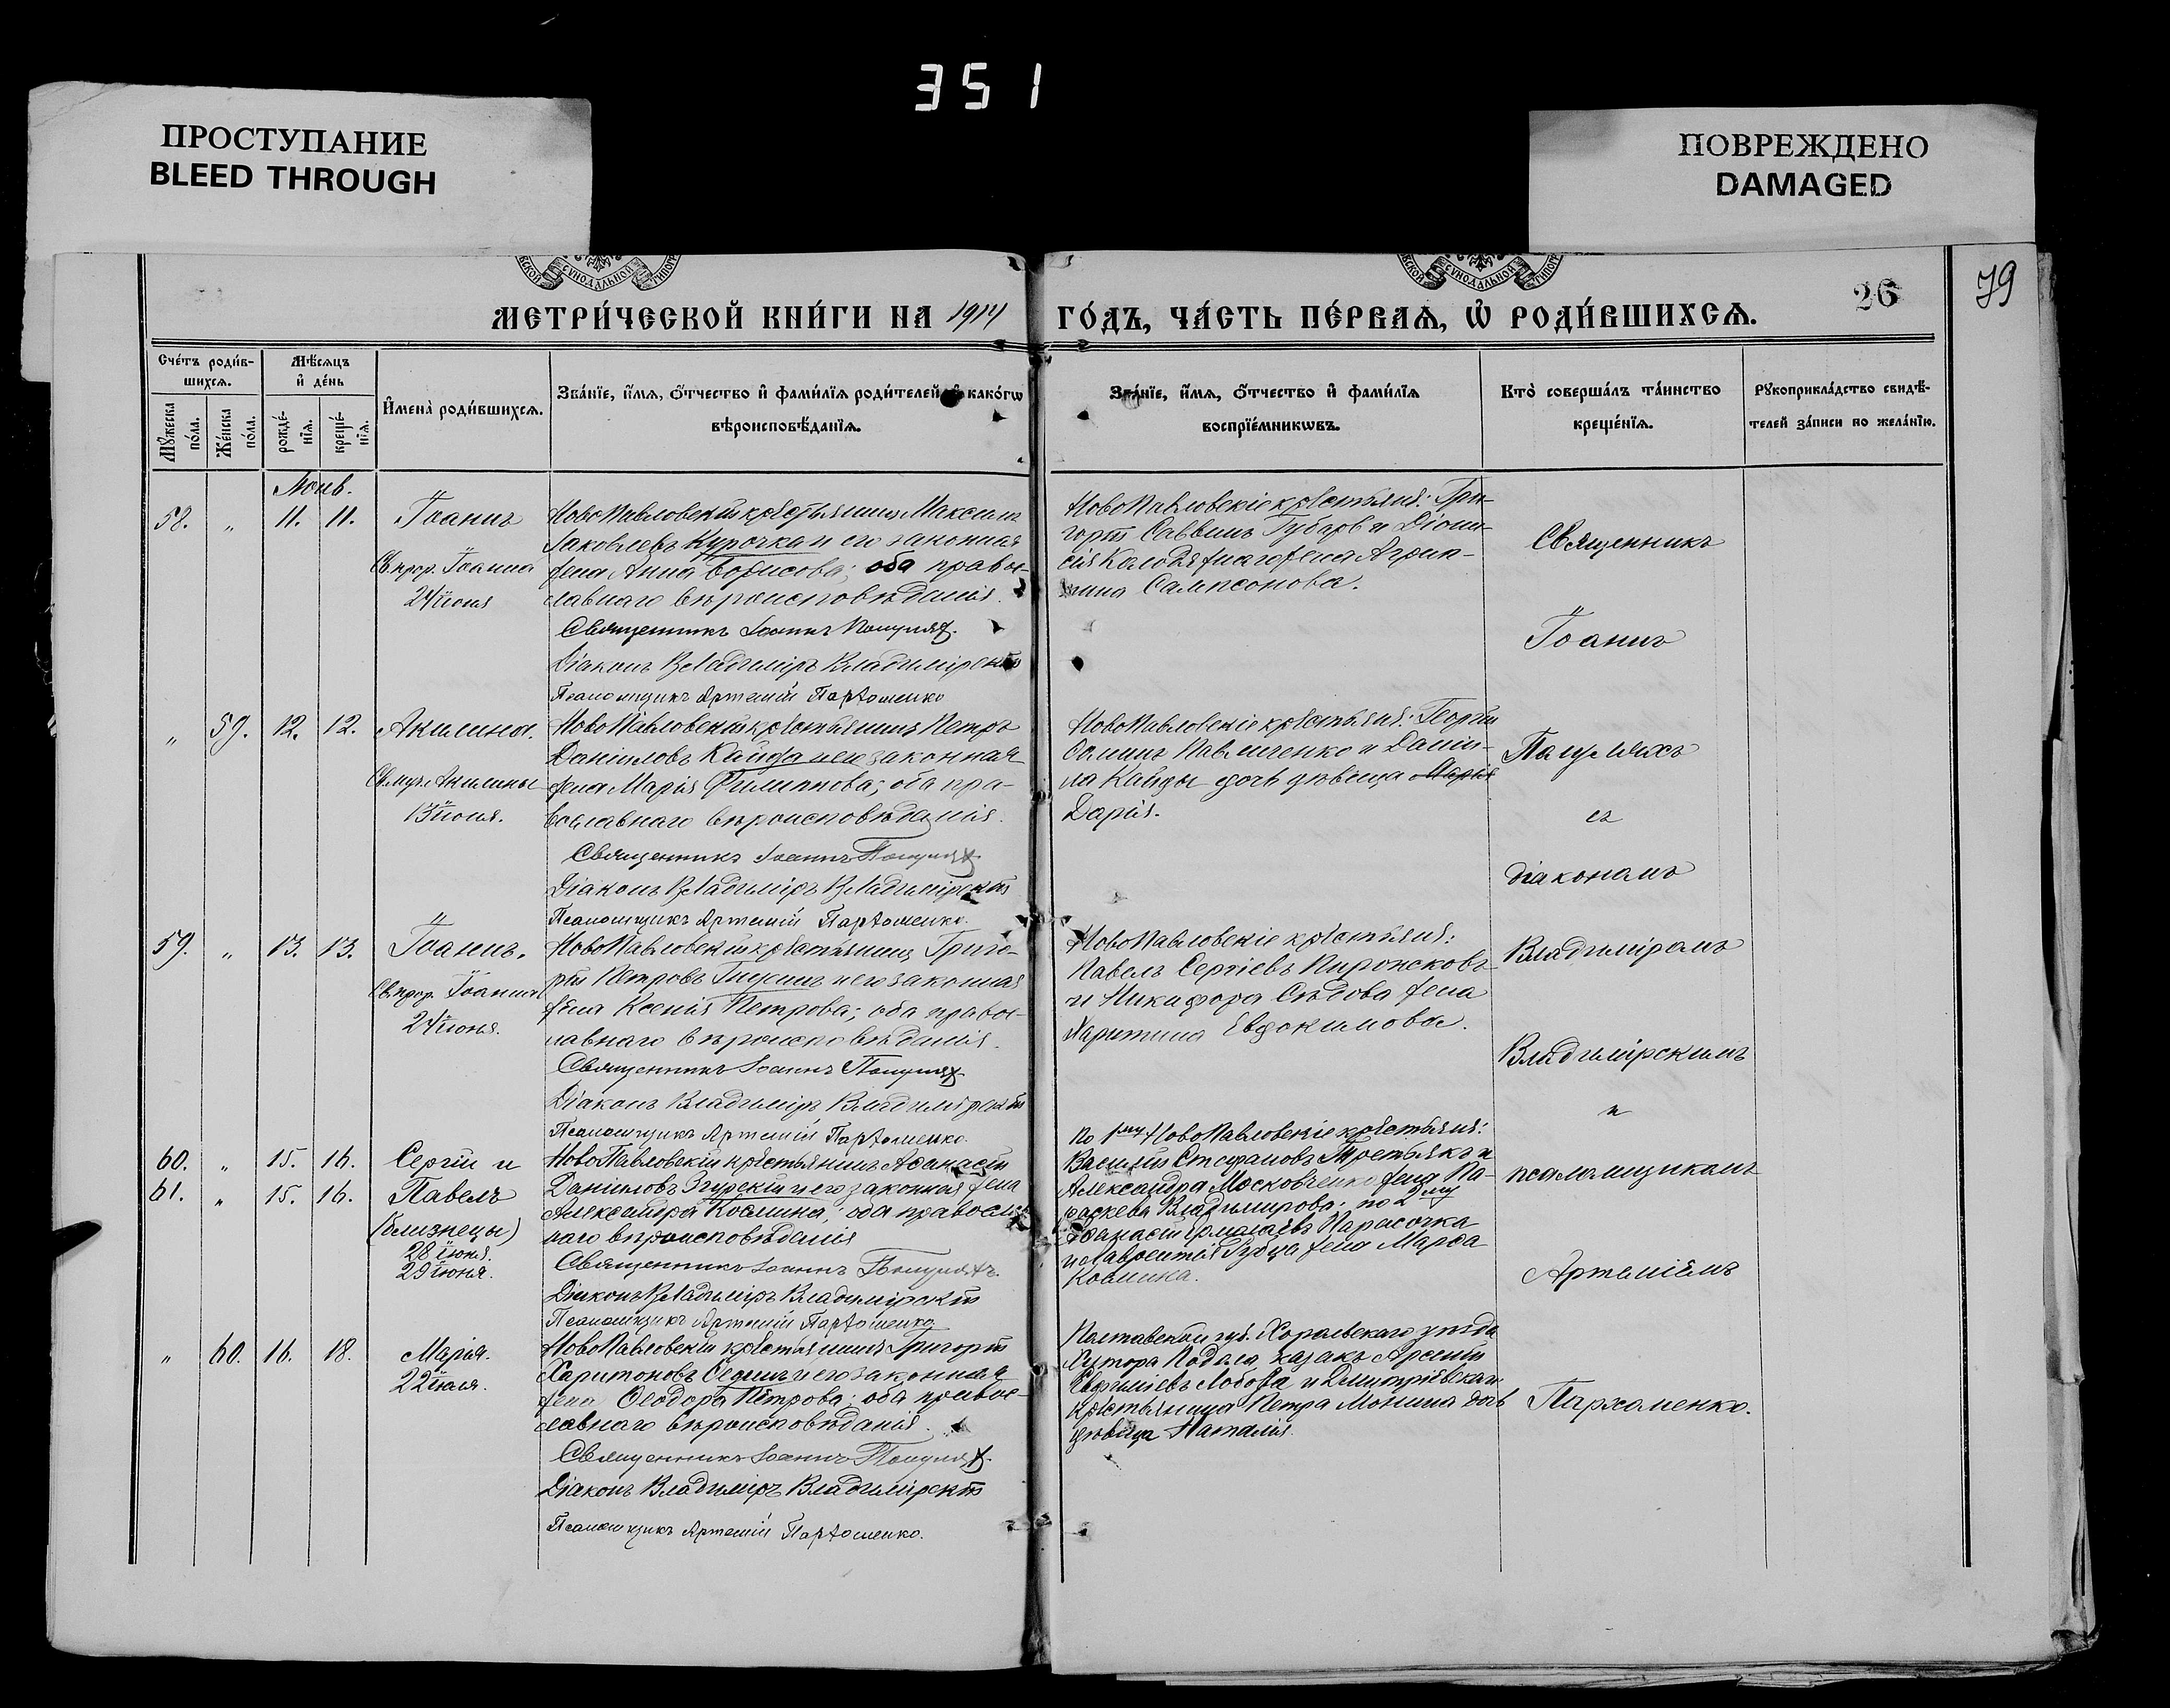 351
ПРОСТУПАНИЕ
BLEED THROUGH
ПОВРЕЖДЕНО
DAMAGED
79
26
МЕТРИ́ЧЕСКОЙ КНИ́ГИ НА 1914 ГО́ДЪ, ЧА́СТЬ ПЕ́РВАѦ, Ѡ РОДИ́ВШИХСѦ.
Сче́тъ роди́в-
шихсѧ.
Мѣ́сѧцъ
и де́нь
Мꙋ́жеска
по́ла.
Же́нска
по́ла.
рожде́-
нїѧ.
креще́-
нїѧ.
Имена̀ роди́вшихсѧ.
Зва́нїе, и́мѧ, о́тчество и фами́лїѧ роди́телей, и како́гѡ
вѣроисповѣ́данїѧ.
Зва́нїе, и́мѧ, о́тчество и фами́лїѧ
воспрїе́мникѡвъ.
Кто̀ соверша́лъ та́инство
креще́нїѧ.
Рꙋкоприкла́дство свидѣ́-
телей за́писи по жела́нїю.
58. " 11. 11. Іоаннъ
Св. прор. Іоанна
24 іюня
НовоПавловскій крестьянинъ Максимъ
Іаковлевъ Курочка и его законная
жена Анна Борисова; оба правос-
лавнаго вѣроисповѣданія.
Священникъ Іоаннъ
Діаконъ Владиміръ Владимірскій
Псаломщикъ Артемій Пархоменко
НовоПавловскіе крестьяне: Гри-
горій Саввинъ Губарев и Діони-
сія жена Агрип-
пина Сампсонова.
" 59. 12. 12. Акилина.
Св. муч. Акилины
13 іюня.
НовоПавловскій крестьянинъ Петръ
Даніиловъ Кайда и его законная
жена Марія Филиппова; оба пра-
вославнаго вѣроисповѣданія.
Священникъ Іоаннъ
Діаконъ Владиміръ Владимірскій
Псаломщикъ Артемій Пархоменко.
НовоПавловскіе крестьяне: Георгій
Павличенко и Даніи-
ла Кайды дочь дѣвица Марія
Дарія.
59. " 13. 13. Іоаннъ.
Св. прор. Іоанна
24 іюня.
НовоПавловскій крестьянинъ Григо-
рій Петровъ и его законная
жена Ксенія Петрова; оба правос-
лавнаго вѣроисповѣданія.
Священникъ Іоаннъ
Діаконъ Владиміръ Владимірскій
Псаломщикъ Артемій Пархоменко.
НовоПавловскіе крестьяне:
Павелъ Сергіевъ
и Никифора Сѣдова жена
Харитина Евдокимова.
60. " 15. 16. Сергій и
61. " 15. 16. Павелъ
(близнецы)
28 іюня.
29 іюня.
НовоПавловскій крестьянинъ Аѳанасій
Даніиловъ Згурскій и его законная жена
Александра Косьмина; оба православ-
наго вѣроисповѣданія
Священникъ Іоаннъ
Діаконъ Владиміръ Владимірскій
Псаломщикъ Артемій Пархоменко
По 1му НовоПавловскіе крестьяне:
Василій Стефановъ Третьякъ и
Александра Московченко жена Па-
раскева Владимирова; по 2му
Парасочка
и Лаврентія Губца жена Марѳа
Косьмина.
" 60. 16. 18. Марія.
22 іюля.
НовоПавловскій крестьянинъ Григорій
Харитоновъ и его законная
жена Ѳеодора Петрова; оба правос-
лавнаго вѣроисповѣданія.
Священникъ Іоаннъ
Діаконъ Владиміръ Владимірскій
Псаломщикъ Артемій Пархоменко.
Полтавской губ. Хорольскаго уѣзда
Хутора казакъ Арсеній
и Дмитріевская
крестьянина Петра дочь
дѣвица Наталія.
Священникъ
Іоаннъ
съ
діакономъ
Владиміромъ
Владимірскимъ
и
псаломщикомъ
Артеміемъ
Пархоменко.